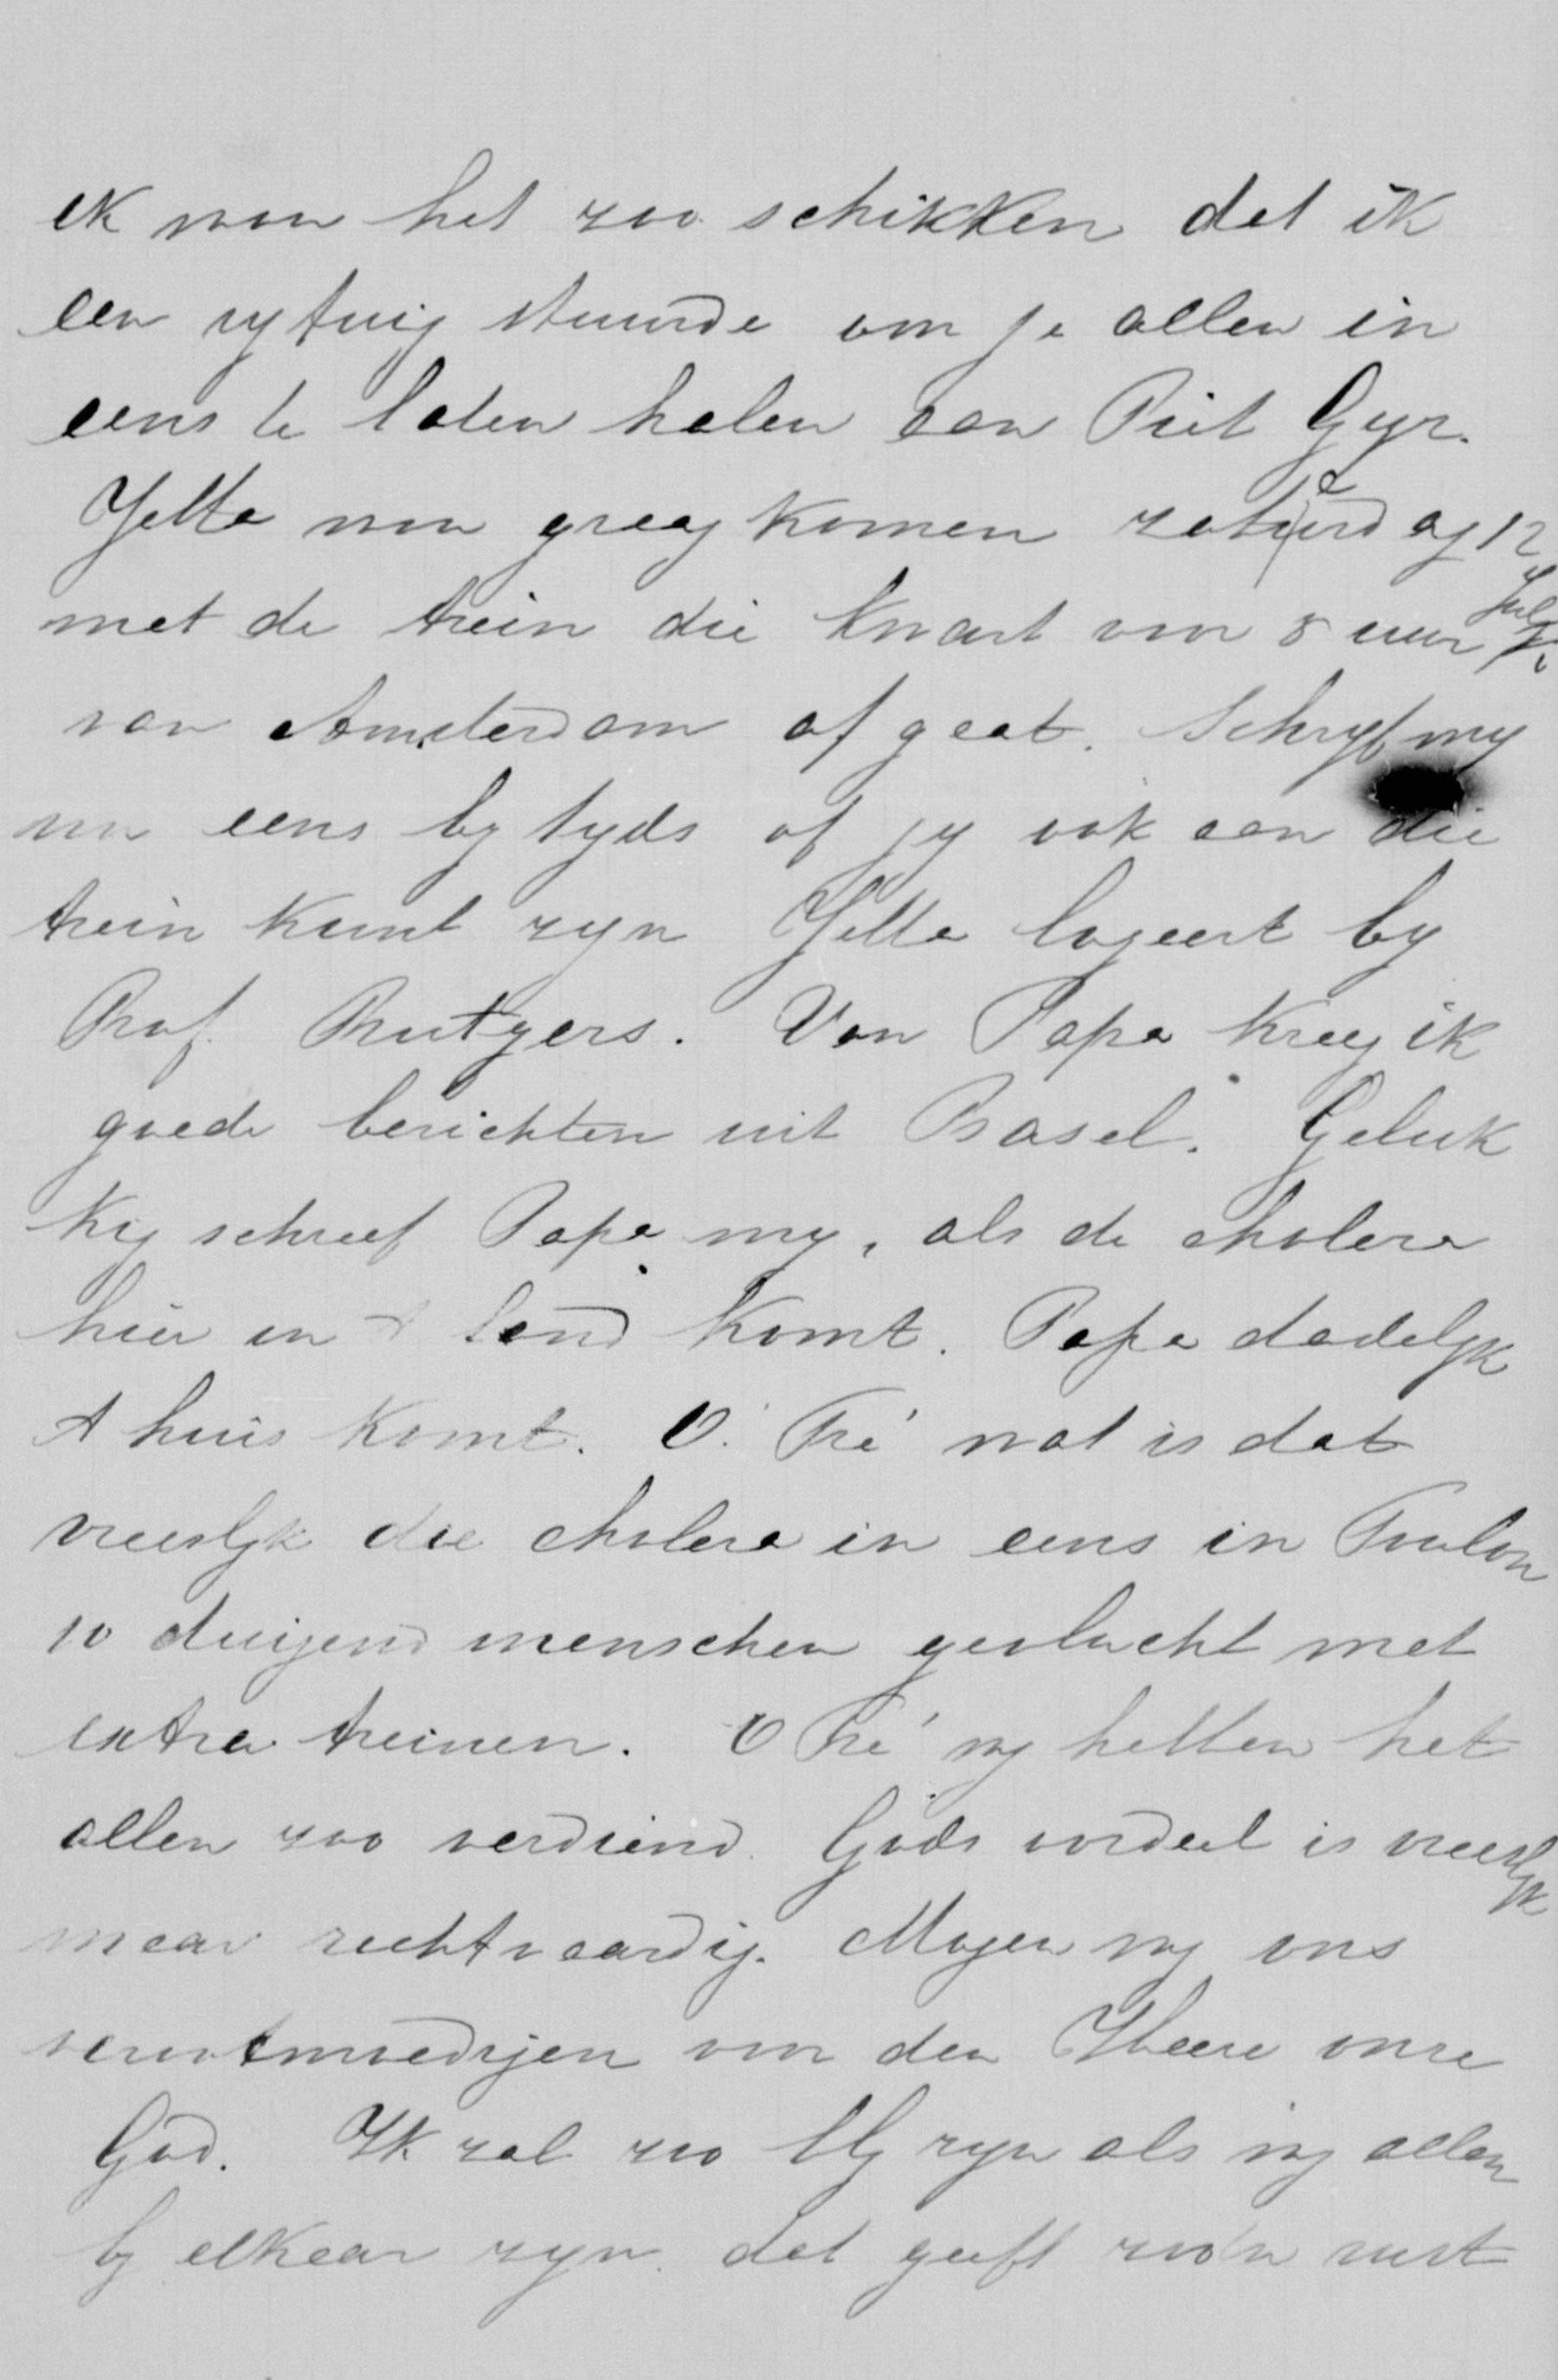 ik wou het zoo schikken dat ik
een rytuig stuurde om je allen in
eens te laten halen aan Piet Gyz.
Jelte wou graag komen zaterdag 12
July
met de trein die kwart voor 8 uur
van Amsterdam af gaat. Schryf my
nu eens by tyds of jy ook aan die
trein kunt zyn Jelte logeert by
Prof. Rutgers. Van Papa kreeg ik
goede berichten uit Basel. Geluk
kig schreef Papa my, als de cholera
hier in 't land komt. Papa dadelyk
t huis komt. O! Tré wat is dat
vreeslyk die cholera in eens in Toulon
10 duizend menschen gevlucht met
extra treinen. O Tré wy hebben het
allen zoo verdiend. Gods oordeel is vreeslyk
maar rechtvaardig. Mogen wy ons
verootmoedigen voor den Heere onze
God. Ik zal zoo bly zyn als wy allen
by elkaar zyn. dat geeft zoo'n rust